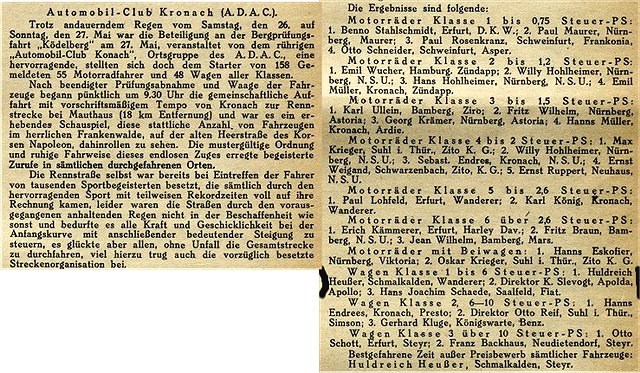 Automobil-Club Kronach (A. D. A. C.).
Trotz andauerndem Regen vom Samstag, den 26. auf
Sonntag, den 27. Mai war die Beteiligung an der Bergprüfungs-
fahrt „Ködelberg" am 27. Mai, veranstaltet von dem rührigen
„Automobil-Club Konach", Ortsgruppe des A. D. A. C., eine
hervorragende, stellten sich doch dem Starter von 158 Ge-
meldeten 55 Motorradfahrer und 48 Wagen aller Klassen.
Nach beendigter Prüfungsabnahme und Waage der Fahr-
zeuge begann pünktlich um 9.30 Uhr die gemeinschaftliche Auf-
fahrt mit vorschriftsmäßigem Tempo von Kronach zur Renn-
strecke bei Mauthaus (18 km Entfernung) und war es ein er-
hebendes Schauspiel, diese stattliche Anzahl von Fahrzeugen
im herrlichen Frankenwalde, auf der alten Heerstraße des Kor-
sen Napoleon, dahinrollen zu sehen. Die mustergültige Ordnung
und ruhige Fahrweise dieses endlosen Zuges erregte begeisterte
Zurufe in sämtlichen durchgefahrenen Orten.
Die Rennstraße selbst war bereits bei Eintreffen der Fahrer
von tausenden Sportbegeisterten besetzt, die sämtlich durch den
hervorragenden Sport mit teilweisen Rekordzeiten voll auf ihre
Rechnung kamen, leider waren die Straßen durch den voraus-
gegangenen anhaltenden Regen nicht in der Beschaffenheit wie
sonst und bedurfte es alle Kraft und Geschicklichkeit bei der
Anfangskurve mit anschließender bedeutender Steigung zu
steuern, es glückte aber allen, ohne Unfall die Gesamtstrecke
zu durchfahren, viel hierzu trug auch die vorzüglich besetzte
Streckenorganisation bei.
Die Ergebnisse sind folgende:
Motorräder Klasse 1 bis 0,75 Steuer-PS:
1. Benno Stahlschmidt, Erfurt, D. K. W.; 2. Paul Maurer, Nürn-
berg, Maurer; 3. Paul Rosenkranz, Schweinfurt, Frankonia,
4. Otto Schneider, Schweinfurt, Asper.
Motorräder Klasse 2 bis 1,2 Steuer-PS:
1. Emil Wucher, Hamburg, Zündapp; 2. Willy Hohlheimer, Nürn-
berg, N. S. U.; 3. Hans Hohlheimer, Nürnberg, N. S. U.; 4. Emil
Müller, Kronach, Zündapp.
Motorräder Klasse 3 bis 1,5 Steuer-PS:
1. Karl Ullein, Bamberg, Ziro; 2. Fritz Wilhelm, Nürnberg,
Astoria; 3. Georg Krämer, Nürnberg, Astoria; 4. Hanns Müller,
Kronach, Ardie.
Motorräder Klasse 4 bis 2 Steuer-PS: 1. Max
Krieger, Suhl i. Thür., Zito K. G.; 2. Willy Hohlheimer, Nürn-
berg, N. S. U.; 3. Sebast. Endres, Kronach, N. S. U.; 4. Ernst
Weigand, Schwarzenbach, Zito, K. G.; 5. Ernst Ruppert, Neuhaus,
N. S. U.
Motorräder Klasse 5 bis 2,6 Steuer-PS:
1. Paul Lohfeld, Erfurt, Wanderer; 2. Karl König, Kronach,
Wanderer.
Motorräder Klasse 6 über 2,6 Steuer-PS:
1. Erich Kämmerer, Erfurt, Harley Dav.; 2. Fritz Braun, Bam-
berg, N. S. U.; 3. Jean Wilhelm, Bamberg, Mars.
Motorräder mit Beiwagen: 1. Hanns Eskofier,
Nürnberg, Viktoria; 2. Oskar Krieger, Suhl i. Thür., Zito K. G.
Wagen Klasse 1 bis 6 Steuer-PS: 1. Huldreich
Heußer, Schmalkalden, Wanderer; 2. Direktor K. Slevogt, Apolda,
Apollo; 3. Hans Joachim Schaede, Saalfeld, Fiat.
Wagen Klasse 2, 6—10 Steuer-PS: 1. Hanns
Endrees, Kronach, Presto; 2. Direktor Otto Reif, Suhl i. Thür.,
Simson; 3. Gerhard Kluge, Königswarte, Benz.
Wagen Klasse 3 über 10 Steuer-PS: 1. Otto
Schott, Erfurt, Steyr; 2. Franz Backhaus, Neudietendorf, Steyr.
Bestgefahrene Zeit außer Preisbewerb sämtlicher Fahrzeuge:
Huldreich Heußer, Schmalkalden, Steyr.